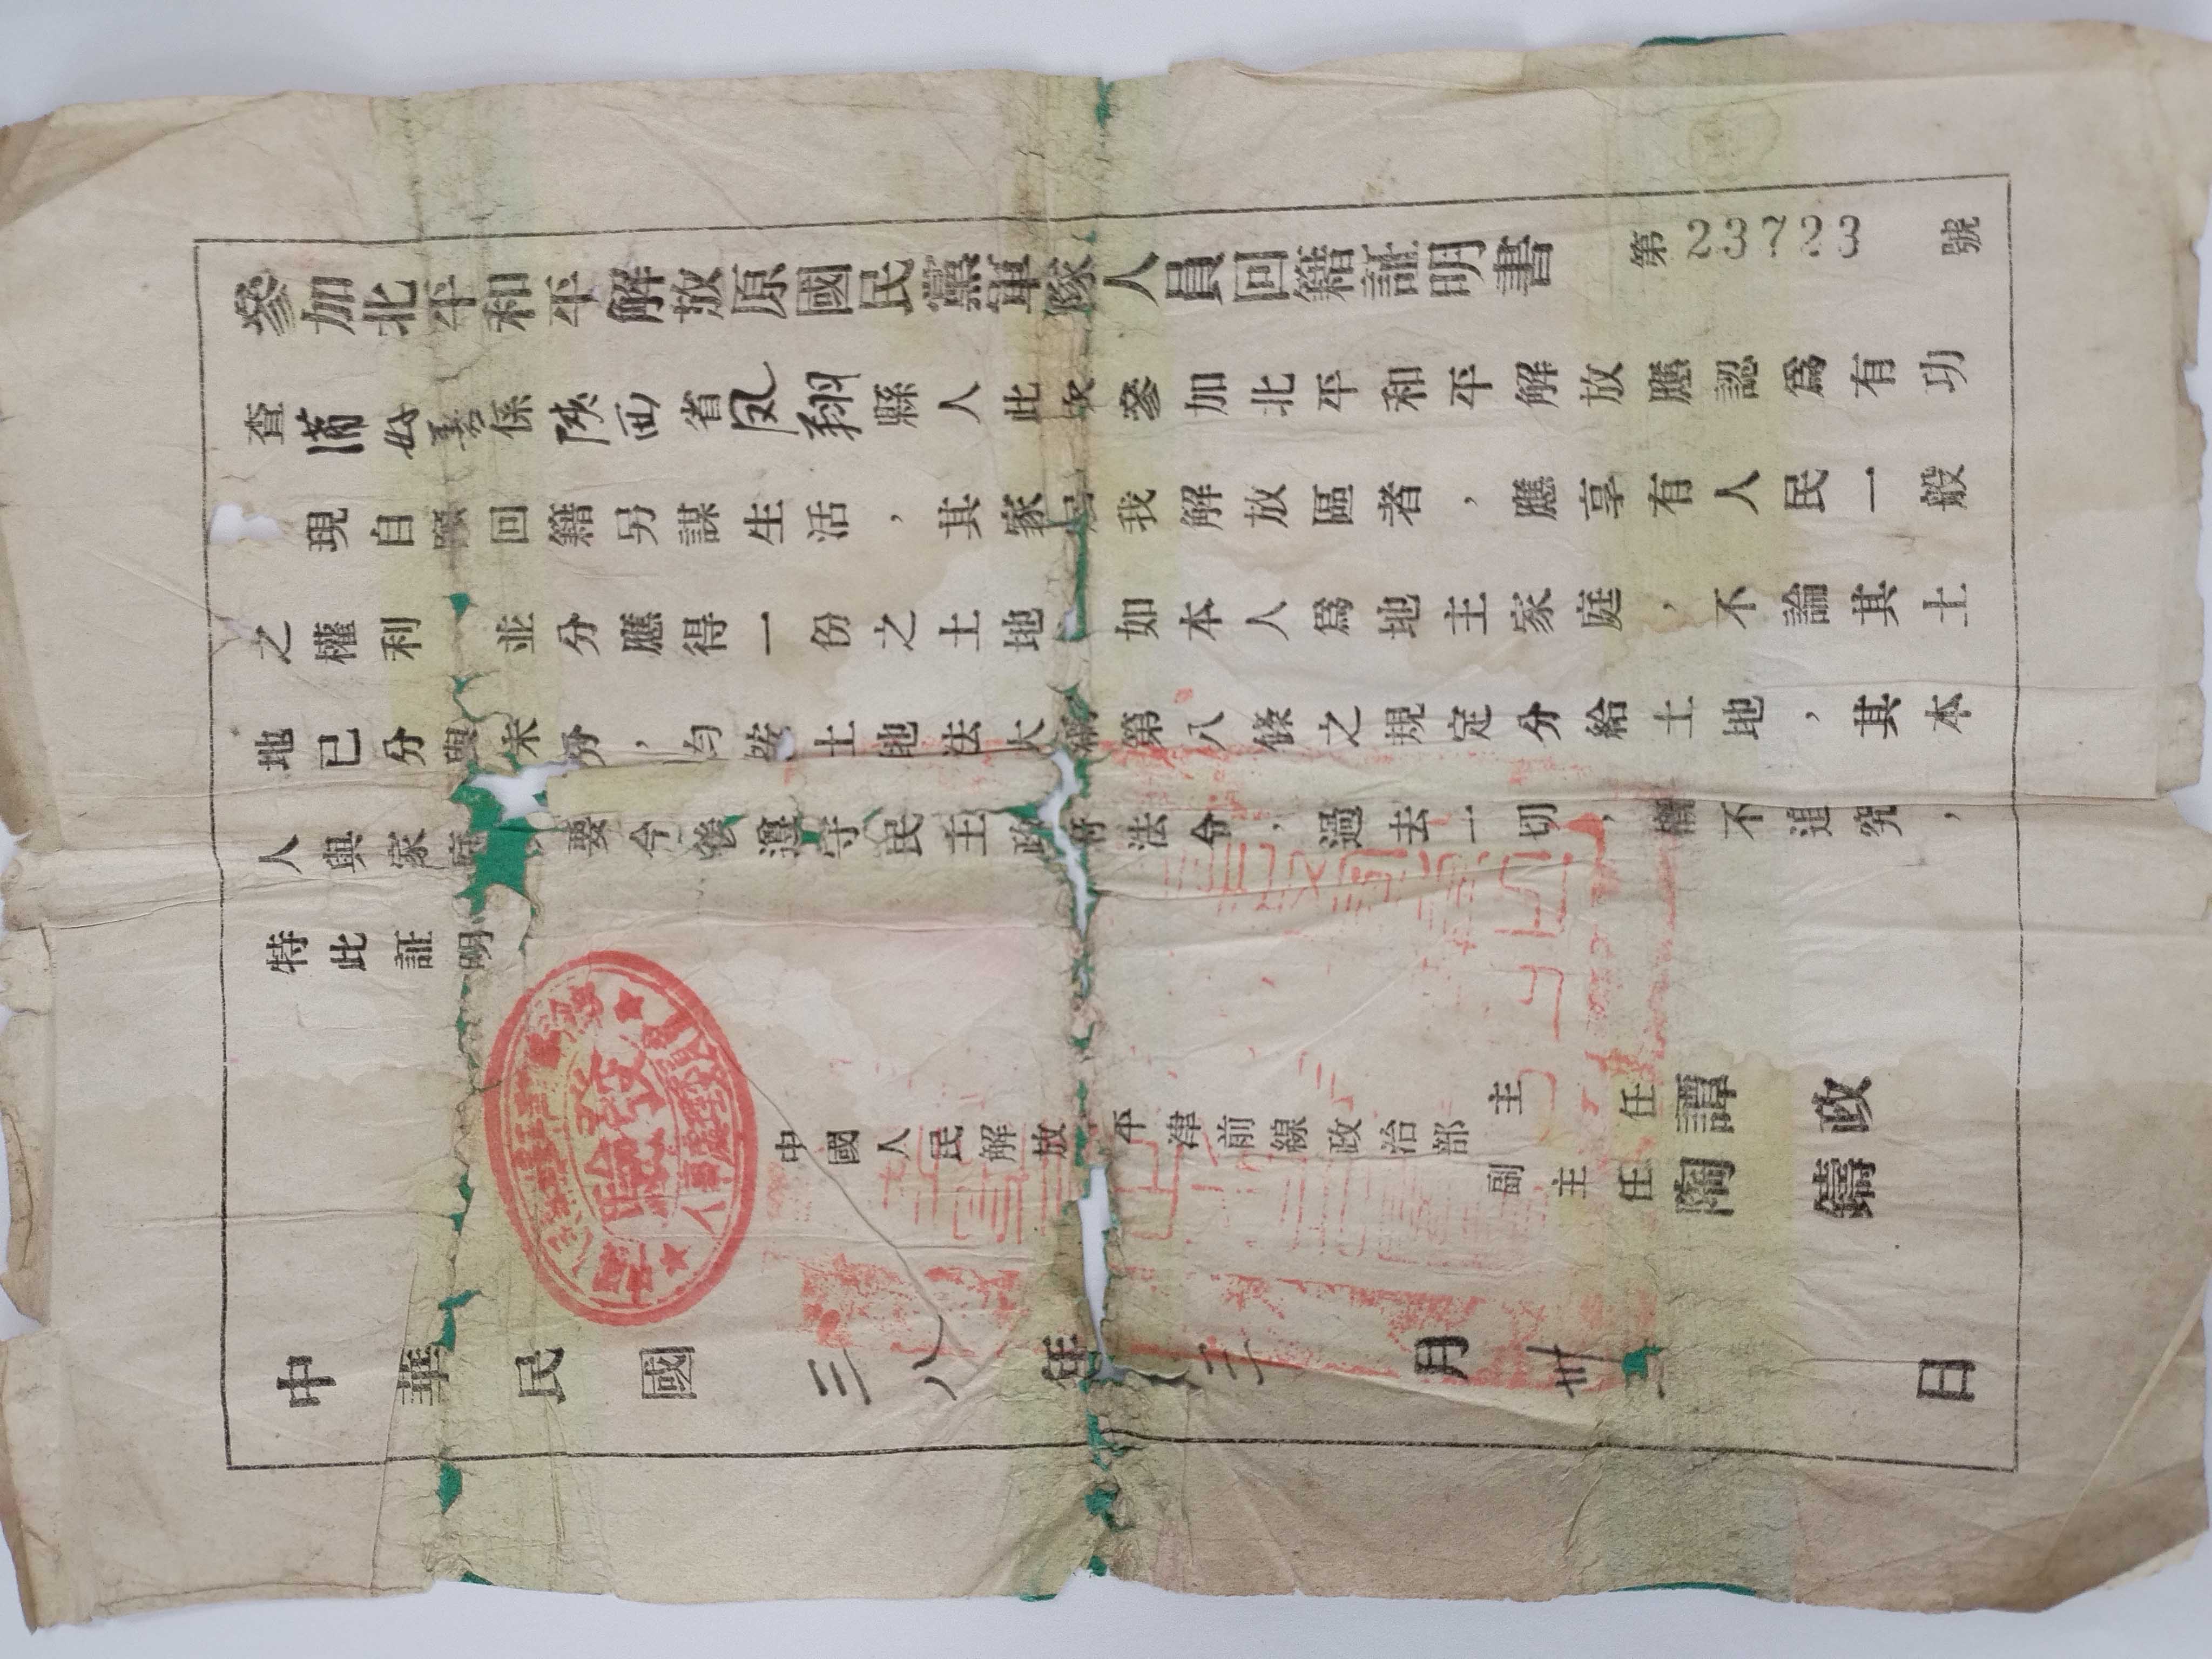 參加北平和平解放原國民黨軍隊人員回籍証明書
第23723號
查蒲好善係陝西省凤翔縣人此次參加北平和平解放應認爲有功
現自願回籍另謀生活，其家居我解放區者，應享有人民一般
之權利 並分應得一份之土地 如本人爲地主家庭，不論其土
地已分與未分，均按土地法大綱第八條之規定分給土地，其本
人與家庭 要今後遵守民主政府法令，過去一切，概不追究，
特此証明
中國人民解放 平津前線政治部
主任 譚政
副主任 陶鑄
中華民國三八年三月卅 日
驗發